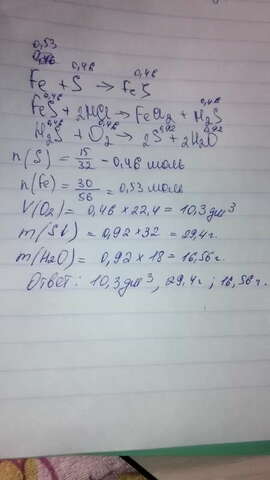 0,53
0,46 0,46
Fe + S → FeS
0,46 0,46
FeS + 2HCl → FeCl2 + H2S
0,46 0,92 0,92
H2S + O2 → 2S + 2H2O
n(S) = 15/32 - 0,46 моль
n(Fe) = 30/56 = 0,53 моль
V(O2) = 0,46 × 22,4 = 10,3 дм³
m(S↓) = 0,92 × 32 = 29,4 г.
m(H2O) = 0,92 × 18 = 16,56 г.
Ответ: 10,3 дм³, 29,4 г; 16,56 г.